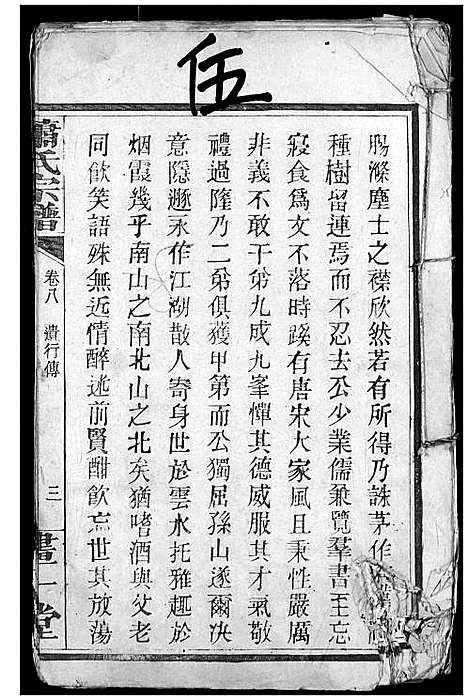 伍
腸滌塵士之襟欣然若有所得乃誅茅作
種樹留連焉而不忍去公少業儒兼覽羣書至忘
寢食爲文不落時蹊有唐宋大家風且秉性嚴厲
非義不敢干弟九成九峯憚其德威服其才氣敬
禮過隆乃二弟俱獲甲第而公獨屈孫山遂爾决
意隱遯永作江湖散人寄身世於雲水托雅趣於
烟霞幾乎南山之南北山之北矣猶嗜酒與父老
同飲笑語殊無近情醉述前賢酣飲忘世其放蕩
蕭氏宗譜
卷八 濆行傳
三
書一堂